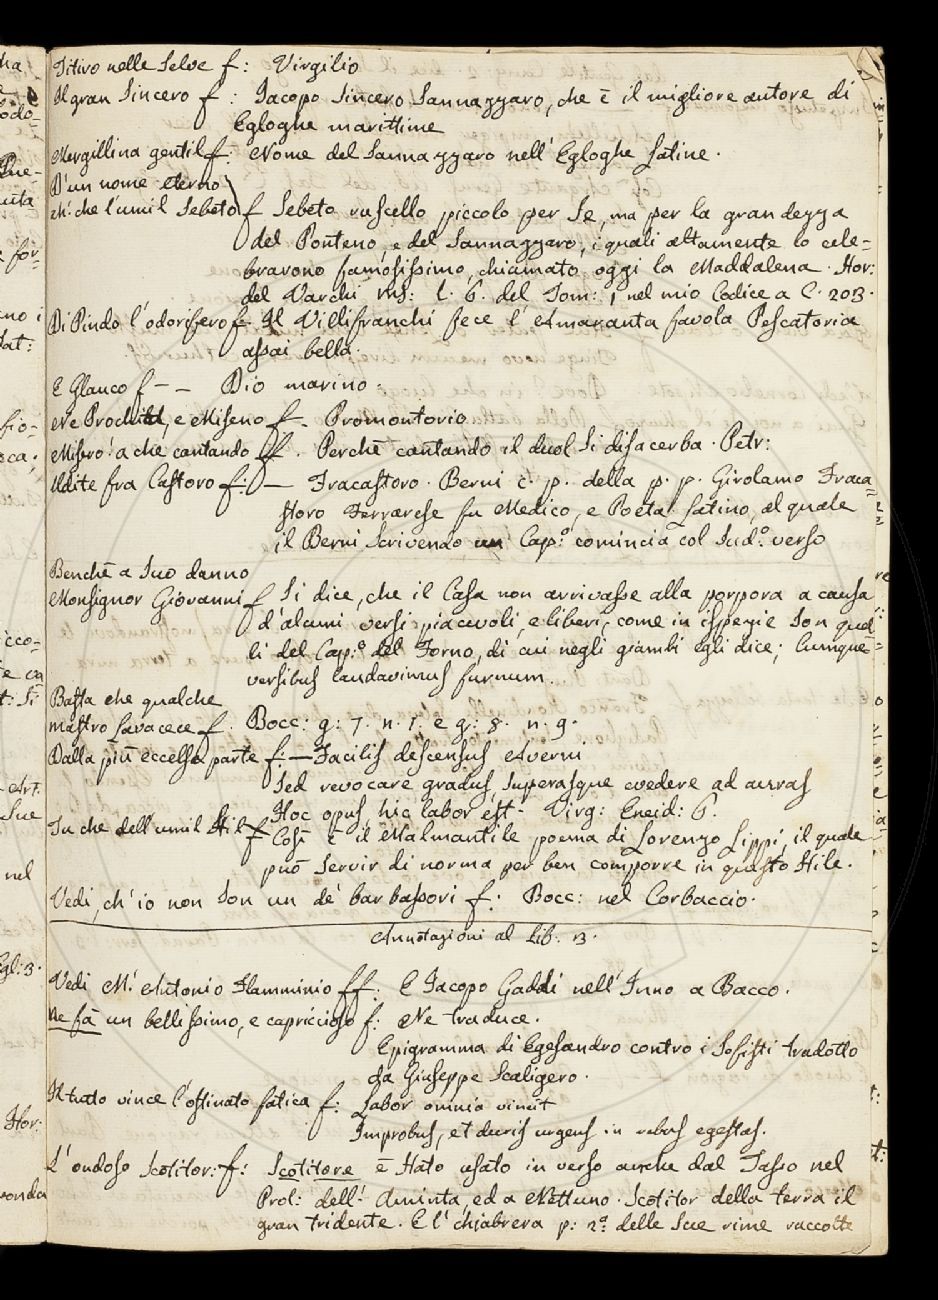 Titiro nelle Selve f: Virgilio
Il gran Sincero f: Jacopo Sincero Sannazzaro, che è il migliore autore di
Egloghe marittime
Mergillina gentil f: Nome del Sannazzaro nell' Egloghe latine.
D'un nome eterno
ch'che l'umil Sebeto f Sebeto ruscello piccolo per Se, ma per la grandezza
del Ponteno, e del Sannazzaro, i quali altamente lo cele=
bravono famosissimo, chiamato oggi la Maddalena. Hor:
del Varchi ms: l. 6. del Tom: 1 nel mio Codice a C. 203.
Di Pindo l'odorifero f. Il Villifranchi fece l'Amaranta favola Pescatoria
assai bella.
E Glauco f - - Dio marino.
Ne Prochita, e Miseno f. Promontorio
Misero! a che cantando ff. Perchè cantando il duol Si disacerba. Petr:
Udite fra Castoro f: - Fracastoro. Berni c. p. della p. p. Girolamo Fraca=
storo Ferrarese fu Medico, e Poeta latino, al quale
il Berni Scrivendo un Cap.º comincia col Sud.º verso
Benchè a Suo danno
Monsignor Giovanni f Si dice, che il Casa non arrivasse alla porpora a causa
d'alcuni versi piacevoli, e liberi, come in ispezie Son quel=
li del Cap.º del Forno, di cui negli giambi Egli dice; Cumque
versibus laudavimus furnum.
Basta che qualche
mastro Lavacece f. Bocc: g: 7. n. 1. e g: 8. n. 9.
Dalla più eccelsa parte f: - Facilis descensus Averni
Sed revocare gradus, Superasque evedere ad auras
Hoc opus, hic labor est - Virg: Eneid: 6.
Tu che dell'umil Stil f Così è il Malmantile poema di Lorenzo Lippi, il quale
può Servir di norma per ben comporre in questo Stile.
Vedi, ch'io non Son un de' barbassori f: Bocc: nel Corbaccio.
Annotazioni al Lib. 3.
Vedi M. Antonio Flamminio ff: E Jacopo Gaddi nell'Inno a Bacco.
Ne fà un bellissimo, e capriccioso f: Ne traduce.
Epigramma di Egesandro contro i Sofisti tradotto
da Giuseppe Scaligero.
Il tutto vince l'ostinato fatica f: Labor omnia vincit
Improbus, et duris urgens in rebus egestas.
L'ondoso Scotitor: f: Scotitore è Stato usato in verso anche dal Tasso nel
Prol: dell' Aminta, ed a Nettuno. Scotitor della terra il
gran tridente. E l' Chiabrera p: 2ª delle Sue rime raccolte